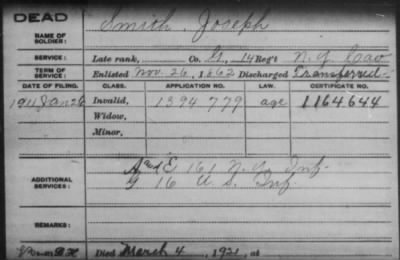 DEAD
NAME OF SOLDIER: Smith, Joseph
SERVICE: Late rank, Co. G, 14 Reg't N.Y. Cav
TERM OF SERVICE: Enlisted Nov. 26, 1862 Discharged Transferred
DATE OF FILING. CLASS. APPLICATION NO. LAW. CERTIFICATE NO.
1911 Jan 26 Invalid, 1394779 age 1164644
Widow,
Minor,
ADDITIONAL SERVICES: A and E 161 N.Y. Inf.
G. 16 U.S. Inf.
REMARKS:
Died March 4, 1921, at